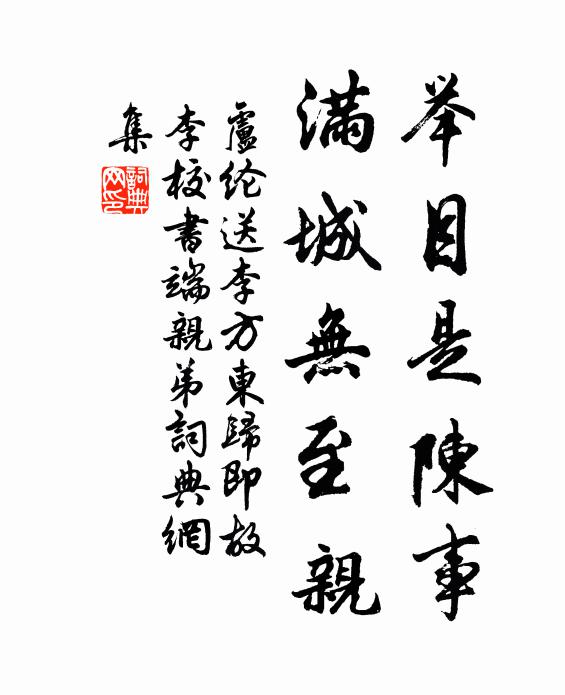 举目是陳事
滿城無至親
盧纶送李方東歸即故
李校書端親弟詞典網
集
詞典
网印